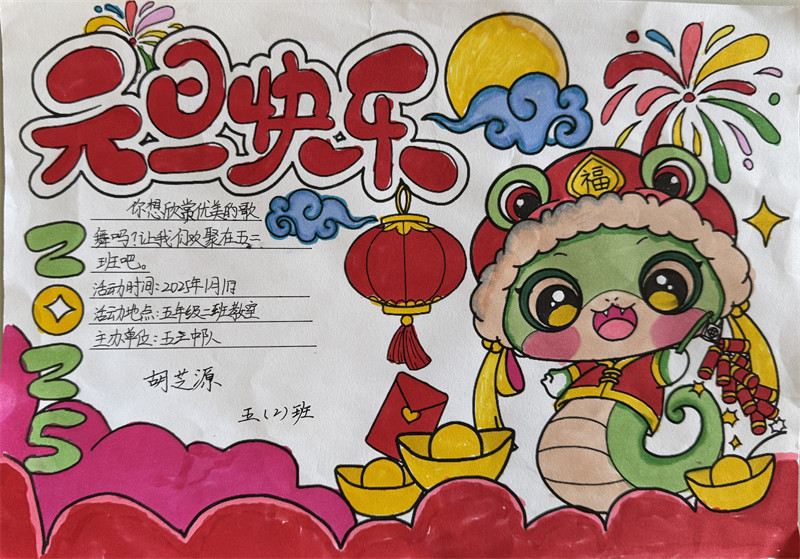 元旦快乐
福
你想欣常优美的歌
舞吗?让我们欢聚在五二
班吧。
活动时间:2025年1月1日
活动地点:五年级二班教室
主办单位:五二中队
胡芝源
五(2)班
2025